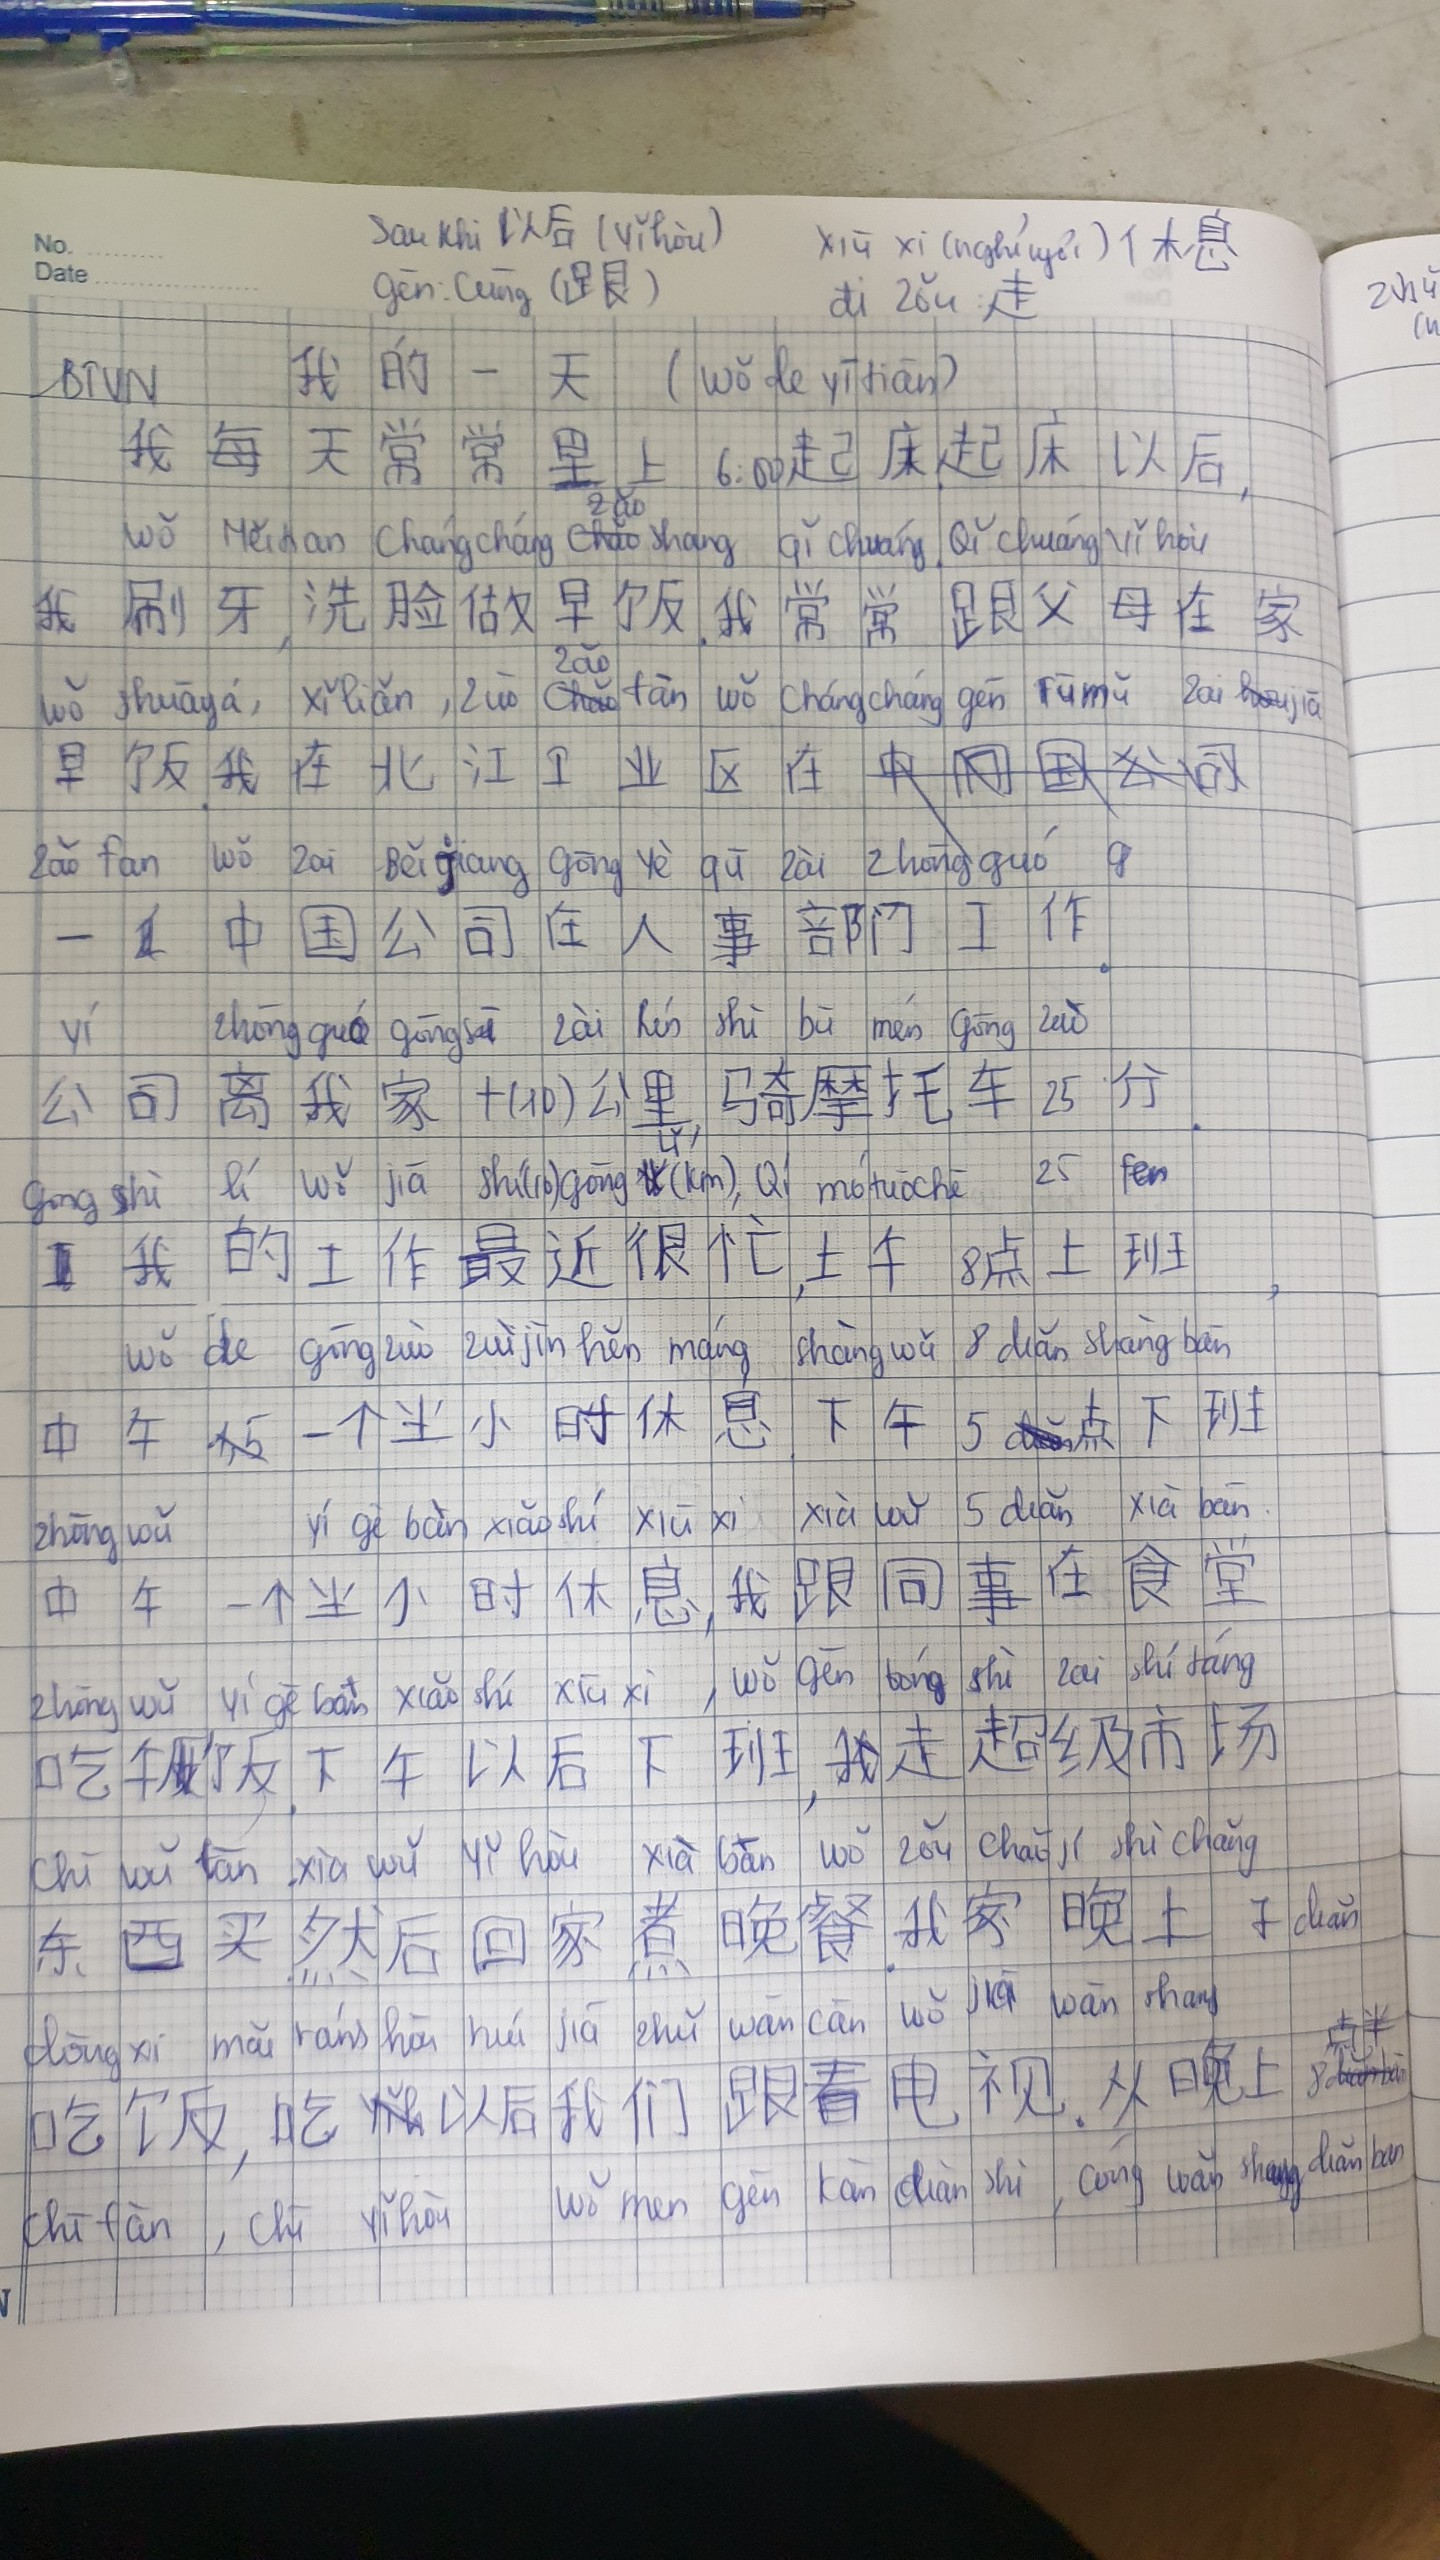 No.
Date
Sau khi 以后 (yǐhòu)
xiū xi (nghỉ ngơi) 休息
gēn: Cùng (跟)
đi zǒu: 走
BTVN 我的一天 (wǒ de yī tiān)
我每天常常里上 6:00起床.起床以后,
zǎo
wǒ Měitian chángcháng shang qǐ chuáng. Qǐ chuáng yǐ hòu
我刷牙,洗脸做早饭.我常常跟父母在家
zǎo
wǒ shuāyá, xǐliǎn, zuò fàn wǒ chángcháng gēn Fùmǔ zai jiā
早饭.我在北江工业区在
zǎo fan wǒ zai Běijiang gōng yè qū zài zhōng guó g
一 中国公司在人事部门工作.
yí zhōng guó gōngsī zài hén shì bù mén gōng zuò
公司离我家十(10)公里,骑摩托车 25 分.
lǐ
gōng shì lí wǒ jiā shí(10)gōng (km), Qí mótuōchē 25 fen
我的工作最近很忙,上午 8点上班,
wǒ de gōng zuò zuìjìn hěn máng shàng wǔ 8 diǎn shàng bān
中午 一个半小时休息.下午 5 点下班
zhōng wǔ yí gè bàn xiǎo shí xiū xi xià wǔ 5 diǎn xià bān.
中午一个半小时休息,我跟同事在食堂
zhōng wǔ yí gè bàn xiǎo shí xīu xi, wǒ gēn tóng shì zai shí táng
吃午饭.下午以后下班,我走超级市场
chī wǔ fàn xìa wǔ yǐ hòu xià bān wǒ zǒu chāo jí shì chǎng
东西买然后回家煮晚餐.我家晚上 7 diǎn
dōng xi mǎi ráns hòu huí jiā zhǔ wǎn cān wǒ jiā wǎn shang
点半
吃饭,吃 以后我们跟看电视.从晚上 8
chī fàn, chī yǐ hòu wǒ men gēn kàn diàn shì, cóng wǎn shang diǎn ban